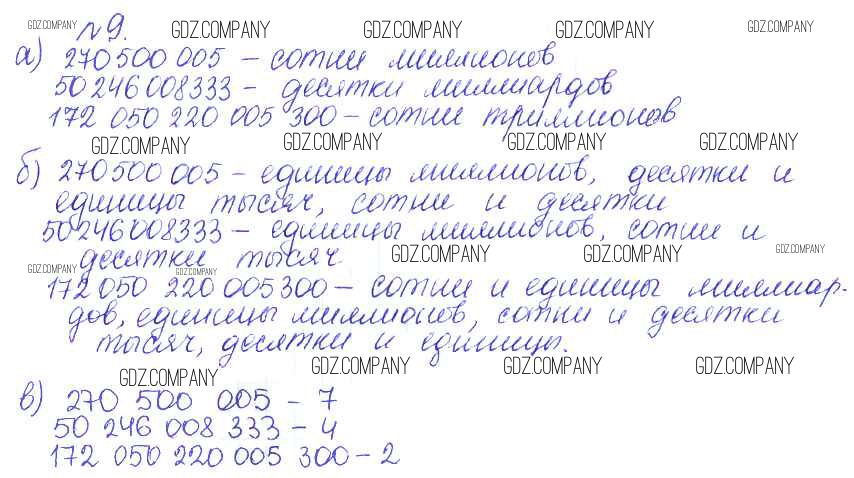 GDZ.COMPANY №9. GDZ.COMPANY GDZ.COMPANY GDZ.COMPANY GDZ.COMPANY
а) 270 500 005 – сотни миллионов
50 246 008 333 – десятки миллиардов
172 050 220 005 300 – сотни триллионов
GDZ.COMPANY GDZ.COMPANY GDZ.COMPANY GDZ.COMPANY
б) 270 500 005 – единицы миллионов, десятки и
единицы тысяч, сотни и десятки
50 246 008 333 – единицы миллионов, сотни и
десятки тысяч GDZ.COMPANY GDZ.COMPANY GDZ.COMPANY
GDZ.COMPANY GDZ.COMPANY
172 050 220 005 300 – сотни и единицы миллиар-
дов, единицы миллионов, сотни и десятки
тысяч, десятки и единицы.
GDZ.COMPANY GDZ.COMPANY GDZ.COMPANY GDZ.COMPANY
в) 270 500 005 – 7
50 246 008 333 – 4
172 050 220 005 300 – 2